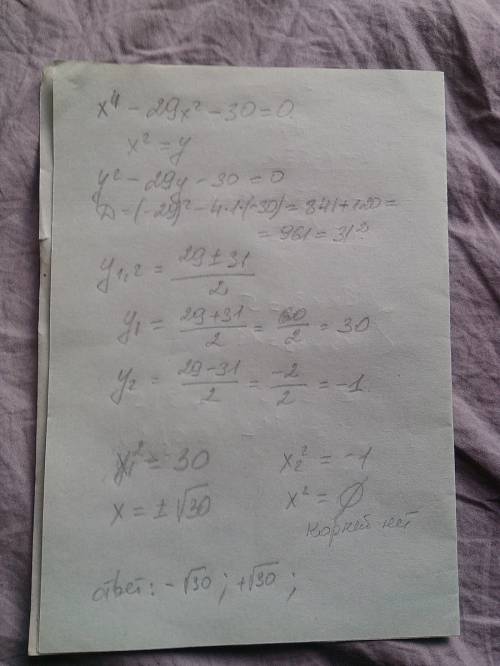 x⁴ - 29x² - 30 = 0
x² = y
y² - 29y - 30 = 0
D = (-29)² - 4·1·(-30) = 841 + 120 =
= 961 = 31²
y₁,₂ = (29 ± 31)/2
y₁ = (29+31)/2 = 60/2 = 30
y₂ = (29-31)/2 = -2/2 = -1
x₁² = 30
x = ±√30
x₂² = -1
x² = ∅
корней нет
ответ: -√30 ; +√30 ;